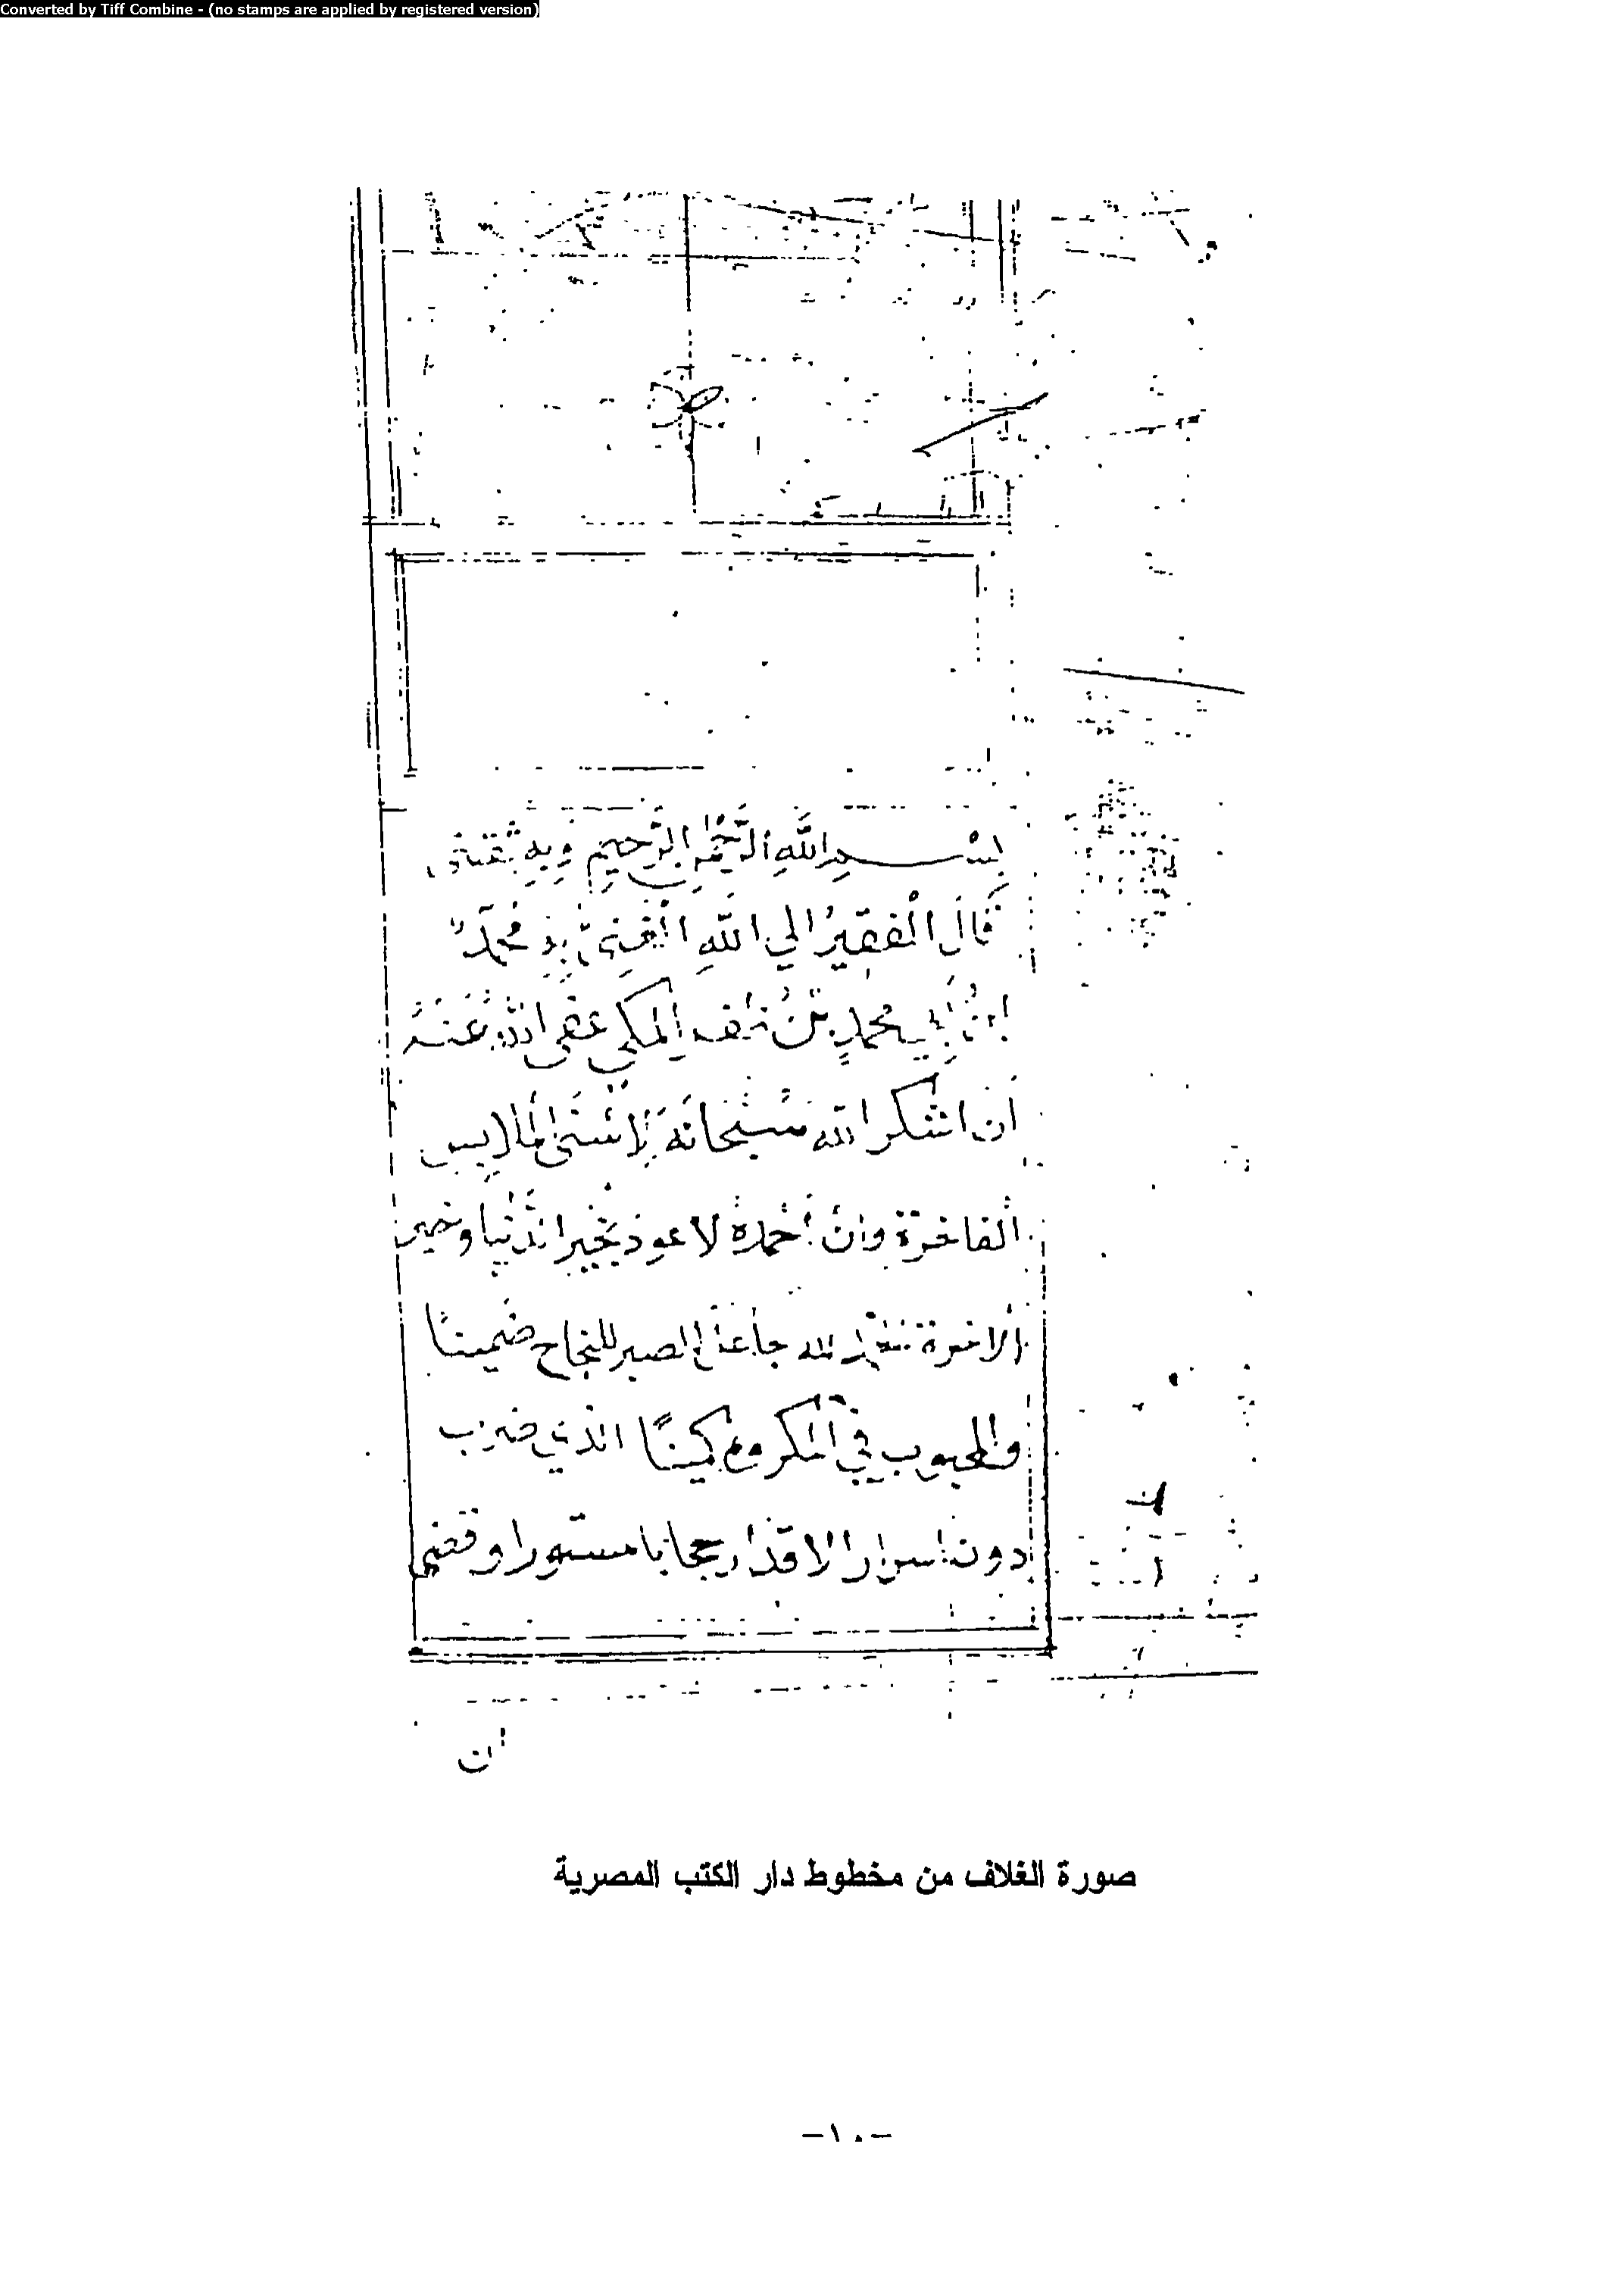 Converted by Tiff Combine - (no stamps are applied by registered version)
بسم الله الرحمن الرحيم وبه ثقتي
قَالَ الفقيرُ الي اللهِ الغنيّ بهِ محمدُ
ابنُ أبي محمدٍ بن ظفر المكي عفي الله عَنهُ
ان اشكر الله سُبْحَانَهُ لاسْنَى الملابس
الفاخرة وان احمده لا عوذ بخير الدنيا وخير
الاخرة لله جاعل الصبر للنجاح ضمينًا
والمحبوب في المكروه كمينًا الذي ضرب
دون اسرار الاقدار حجابا مستورا وقضي
ان
صورة الغلاف من مخطوط دار الكتب المصرية
-١٠-